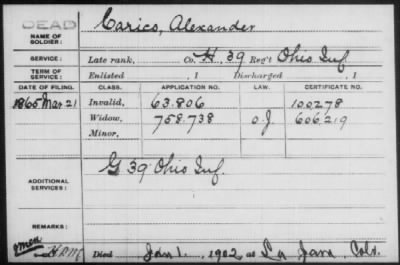 DEAD
NAME OF SOLDIER: Carico, Alexander
SERVICE: Late rank, Co. H, 39 Reg't Ohio Inf.
TERM OF SERVICE: Enlisted , 1 Discharged , 1
DATE OF FILING. CLASS. APPLICATION NO. LAW. CERTIFICATE NO.
1865 Mar. 21 Invalid, 63.806 100278
Widow, 758.738 O.J. 606,219
Minor,
ADDITIONAL SERVICES: G 39 Ohio Inf.
REMARKS:
Died Jan 1, 1902 at La Jara, Colo.